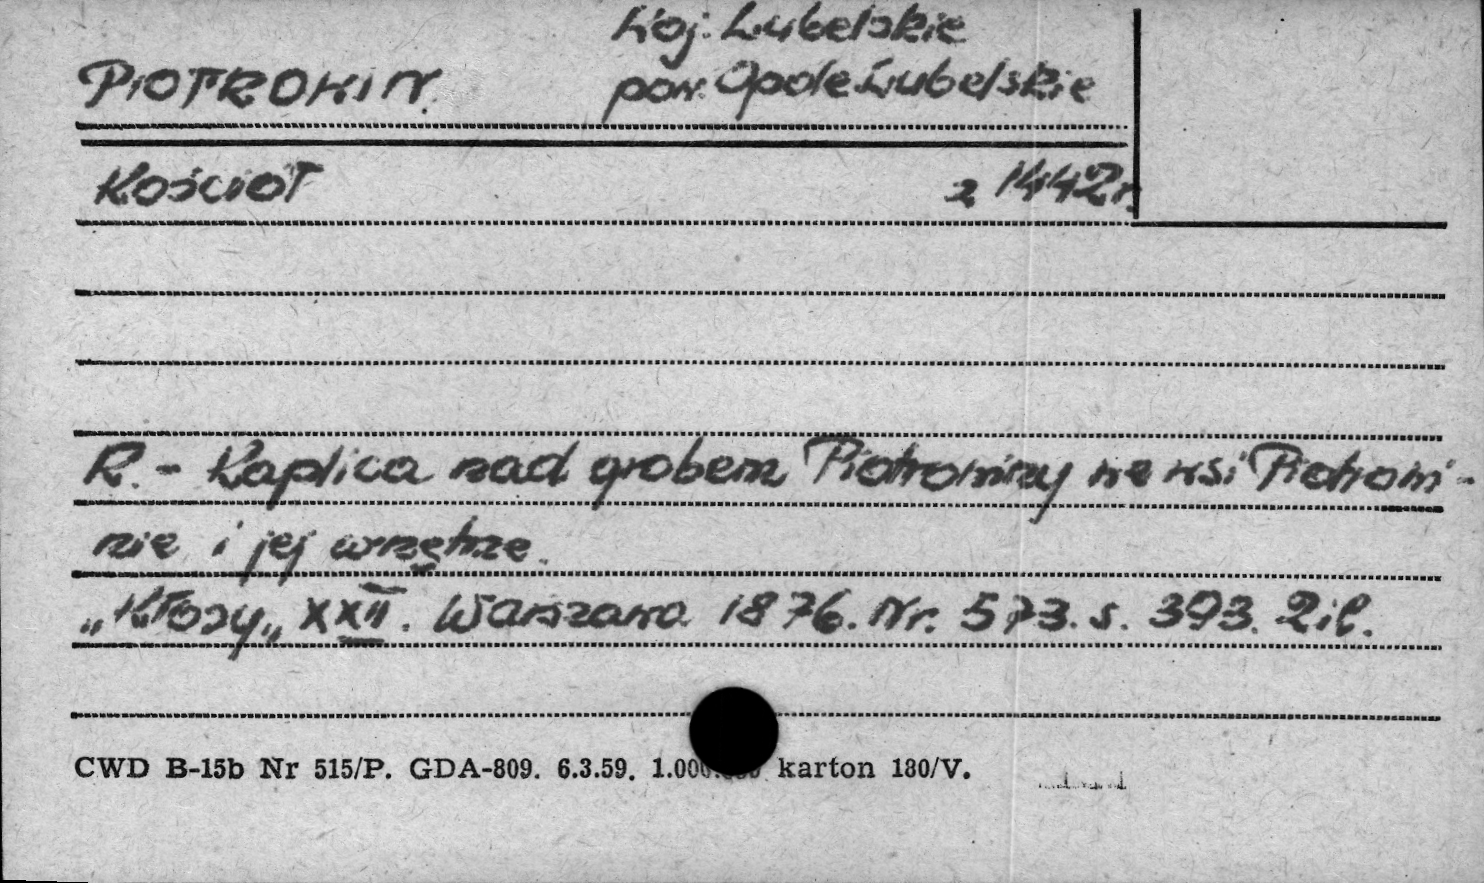 Woj. Lubelskie
PIOTROWIN. pow. Opole Lubelskie
Kościół z 1442 r.
R. - Kaplica nad grobem Piotrowiny we wsi Piotrowi-
nie i jej wnętrze.
„Kłosy„ XXII. Warszawa 1876. Nr. 573. s. 393. 2 il.
CWD B-15b Nr 515/P. GDA-809. 6.3.59. karton 180/V.